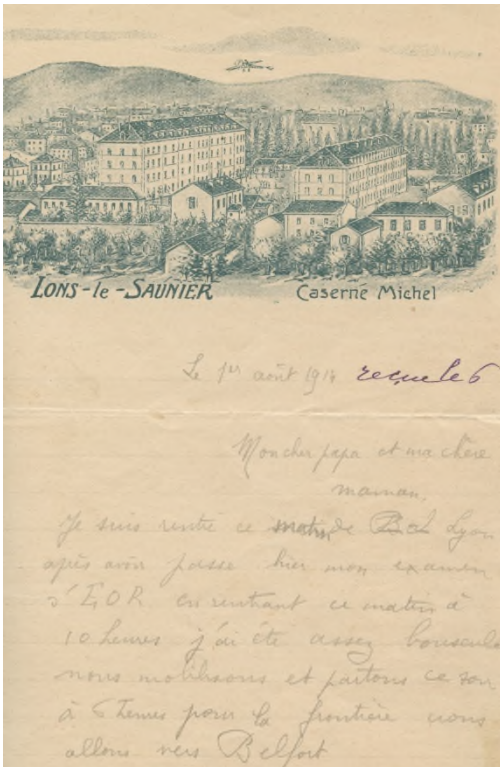 LONS-le-SAUNIER
Caserne Michel
Le 1er août 1914 reçue le 6
Mon cher papa et ma chère
maman,
Je suis rentré ce matin de Lyon
après avoir passé hier mon examen
d'EOR en rentrant ce matin à
10 heures j'ai été assez bousculé
nous mobilisons et partons ce soir
à 6 heures pour la frontière nous
allons vers Belfort